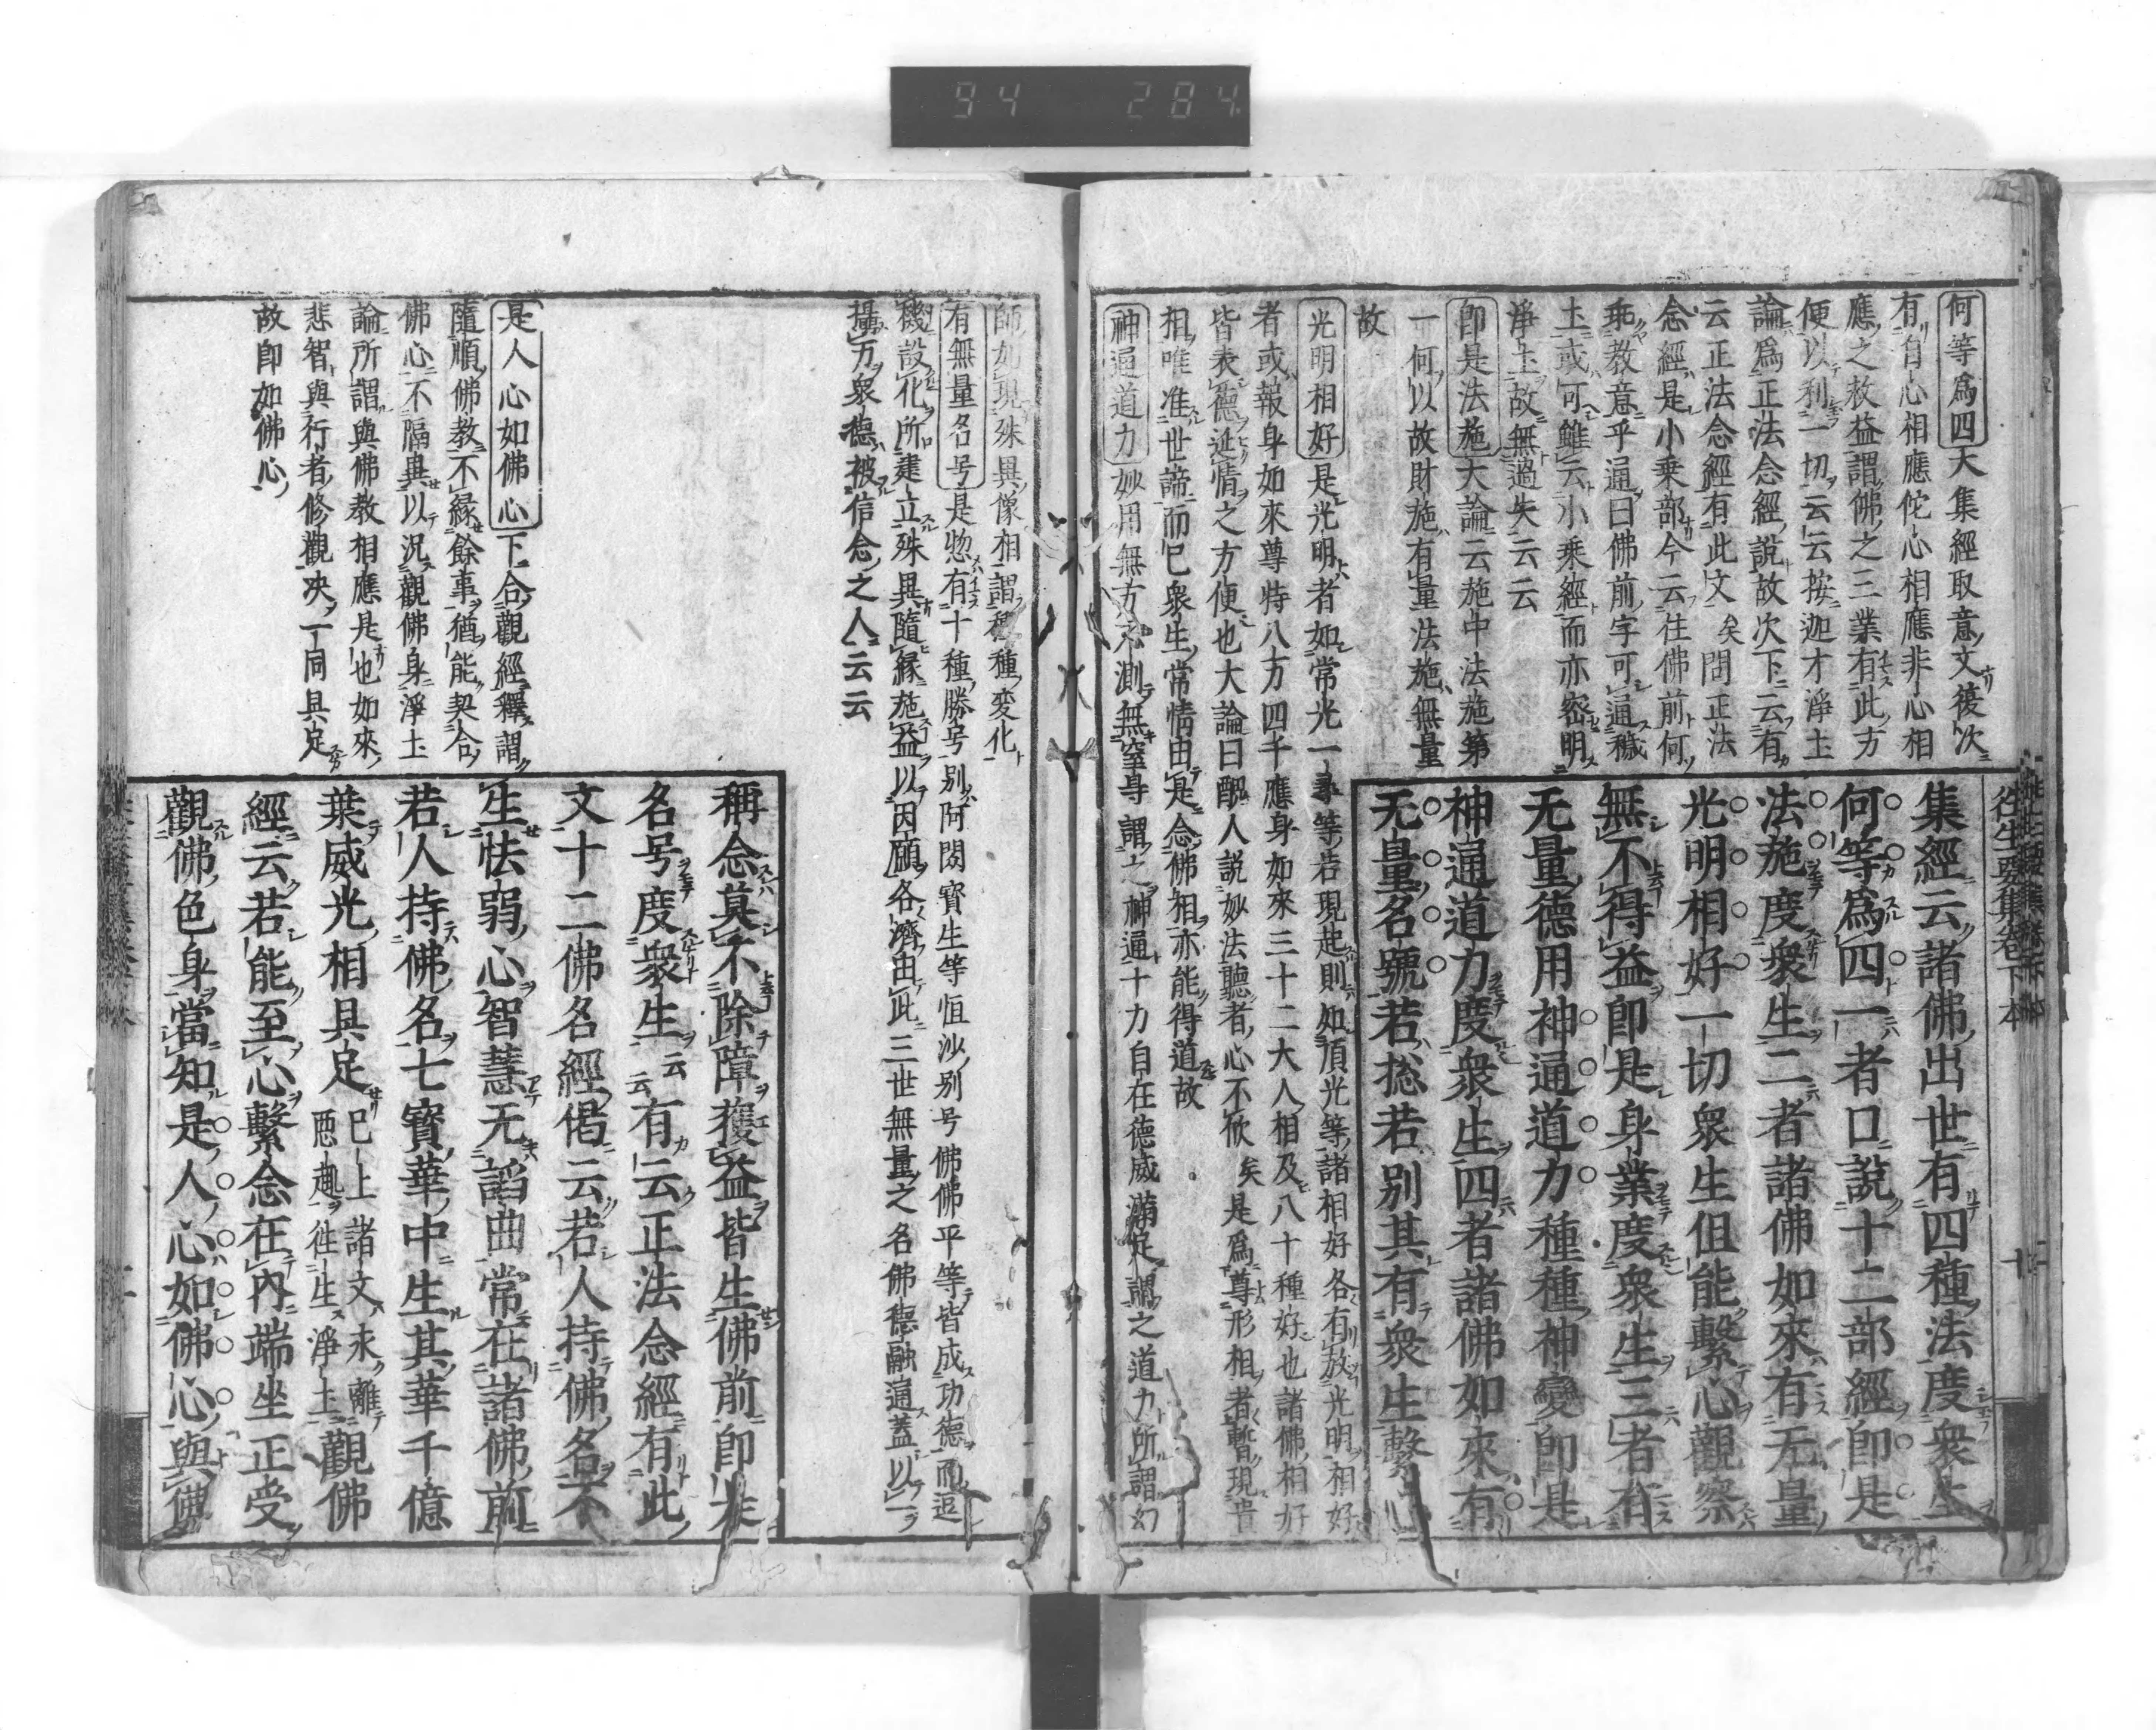 94 284
往生要集卷下本
何等為四大集經取意文後次
有自心相應佗心相應非心相
應之救益謂佛之三業有此方
便以利一切云云按迦才淨土
論為正法念經說故次下云有
云正法念經有此文矣問正法
念經是小乘部今云往佛前何
乖教意乎通曰佛前字可通穢
土或可雖云小乘經而亦密明
淨土故無過失云云
即是法施大論云施中法施第
一何以故財施有量法施無量
故
光明相好是光明者如常光一尋等若現起則如頂光等諸相好各有放光明相好
者或報身如來尊特八万四千應身如來三十二大人相及八十種好也諸佛相好
皆表德延情之方便也大論曰醜人說妙法聽者心不欣矣是為尊形相者暫現貴
相唯准世諦而已衆生常情由是念佛相亦能得道故
神通道力妙用無方不測無窒導謂之神通十力自在德威滿足謂之道力所謂幻
集經云諸佛出世有四種法度衆生
何等為四一者口說十二部經即是
法施度衆生二者諸佛如來有无量
光明相好一切衆生但能繫心觀察
無不得益即是身業度衆生三者有
无量德用神通道力種種神變即是
神通道力度衆生四者諸佛如來有
无量名號若捴若別其有衆生繫心
師如現殊異像相謂種種変化
有無量名号是惣有十種勝号別阿閦寶生等恒沙別号佛佛平等皆成功德而逗
機設化所建立殊異隨縁施益以因願各濟由此三世無量之名佛德融通蓋以一
攝万衆德被信念之人云云
是人心如佛心下合觀經釋謂
隨順佛教不縁餘事猶能契合
佛心不隔異以況觀佛身淨土
論所謂與佛教相應是也如來
悲智與行者修觀决一同具足
故即如佛心
稱念莫不除障獲益皆生佛前即
名号度衆生云云有云正法念經有此
文十二佛名經偈云若人持佛名不
生怯弱心智慧无諂曲常在諸佛前
若人持佛名七寳華中生其華千億
葉威光相具足已上諸文未離惡趣往生淨土觀佛
經云若能至心繫念在內端坐正受
觀佛色身當知是人心如佛心與佛